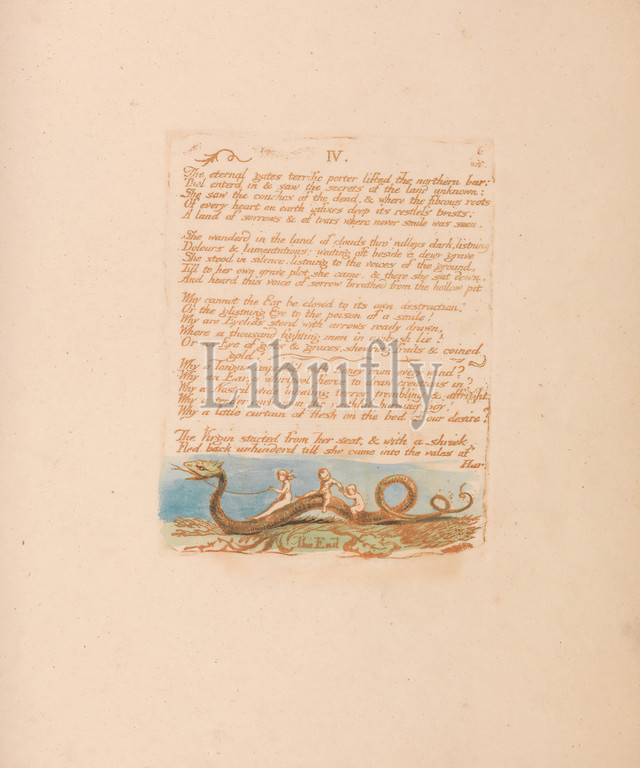 IV.
6
The eternal gates terrific porter lifted the northern bar:
Thel enter'd in & saw the secrets of the land unknown:
She saw the couches of the dead, & where the fibrous roots
Of every heart on earth infixes deep its restless twists:
A land of sorrows & of tears where never smile was seen.
She wanderd in the land of clouds thro' valleys dark, listning
Dolours & lamentations: waiting oft beside a dewy grave
She stood in silence, listning to the voices of the ground,
Till to her own grave plot she came, & there she sat down.
And heard this voice of sorrow breathed from the hollow pit
Why cannot the Ear be closed to its own destruction?
Or the glistning Eye to the poison of a smile!
Why are Eyelids stord with arrows ready drawn,
Where a thousand fighting men in ambush lie?
Or an Eye of gifts & graces, show'ring fruits & coined
gold!
Why a Tongue impress'd with honey from every wind?
Why an Ear, a whirlpool fierce to draw creations in?
Why a Nostril wide inhaling terror trembling & affright
Why a tender curb upon the youthful burning boy!
Why a little curtain of flesh on the bed of our desire?
The Virgin started from her seat, & with a shriek
Fled back unhinderd till she came into the vales of
Har
The End
Librifly